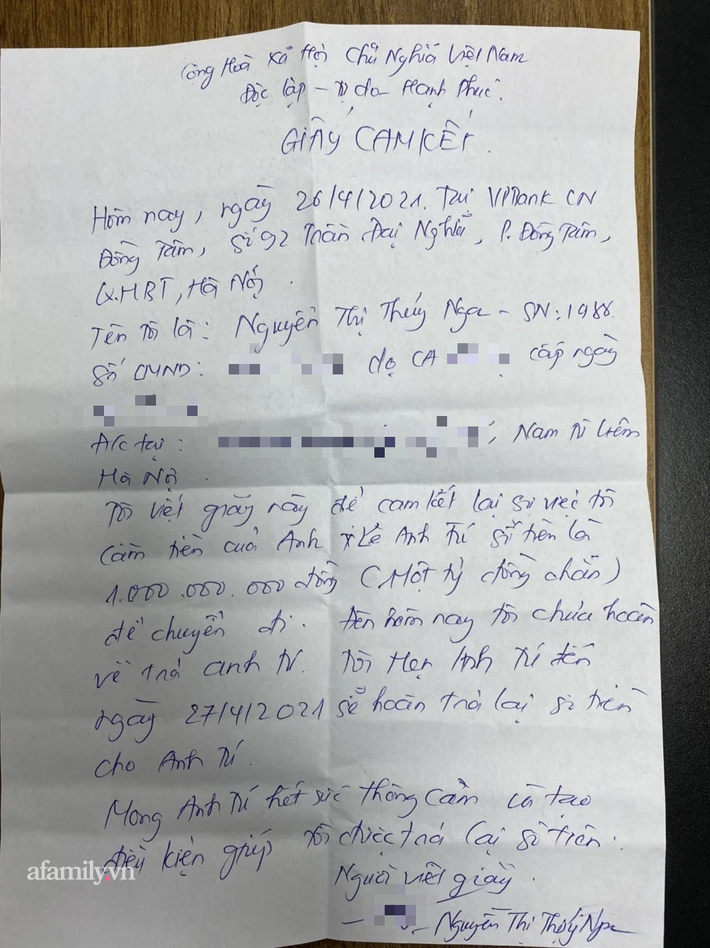 Cộng Hoà Xã Hội Chủ Nghĩa Việt Nam
Độc lập - Tự do Hạnh Phúc.
GIẤY CAM KẾT.
Hôm nay, ngày 26/4/2021. Tại VPBank CN
Đồng Tâm, Số 92 Trần Đại Nghĩa, P. Đồng Tâm,
Q.HBT, Hà Nội.
Tên tôi là: Nguyễn Thị Thúy Nga - SN: 1988.
Số CMND: do CA cấp ngày
Đ/c tại: , Nam Từ Liêm
Hà Nội.
Tôi viết giấy này để cam kết lại sự việc tôi
cầm tiền của Anh Lê Anh Tú số tiền là
1.000.000.000 đồng (Một tỷ đồng chẵn)
để chuyển đi. Đến hôm nay tôi chưa hoàn
về trả anh Tú. Tôi Hẹn Anh Tú đến
ngày 27/4/2021 sẽ hoàn trả lại số tiền
cho Anh Tú.
Mong Anh Tú hết sức thông cảm và tạo
điều kiện giúp tôi được trả lại số tiền.
Người viết giấy.
Nguyễn Thị Thúy Nga
afamily.vn